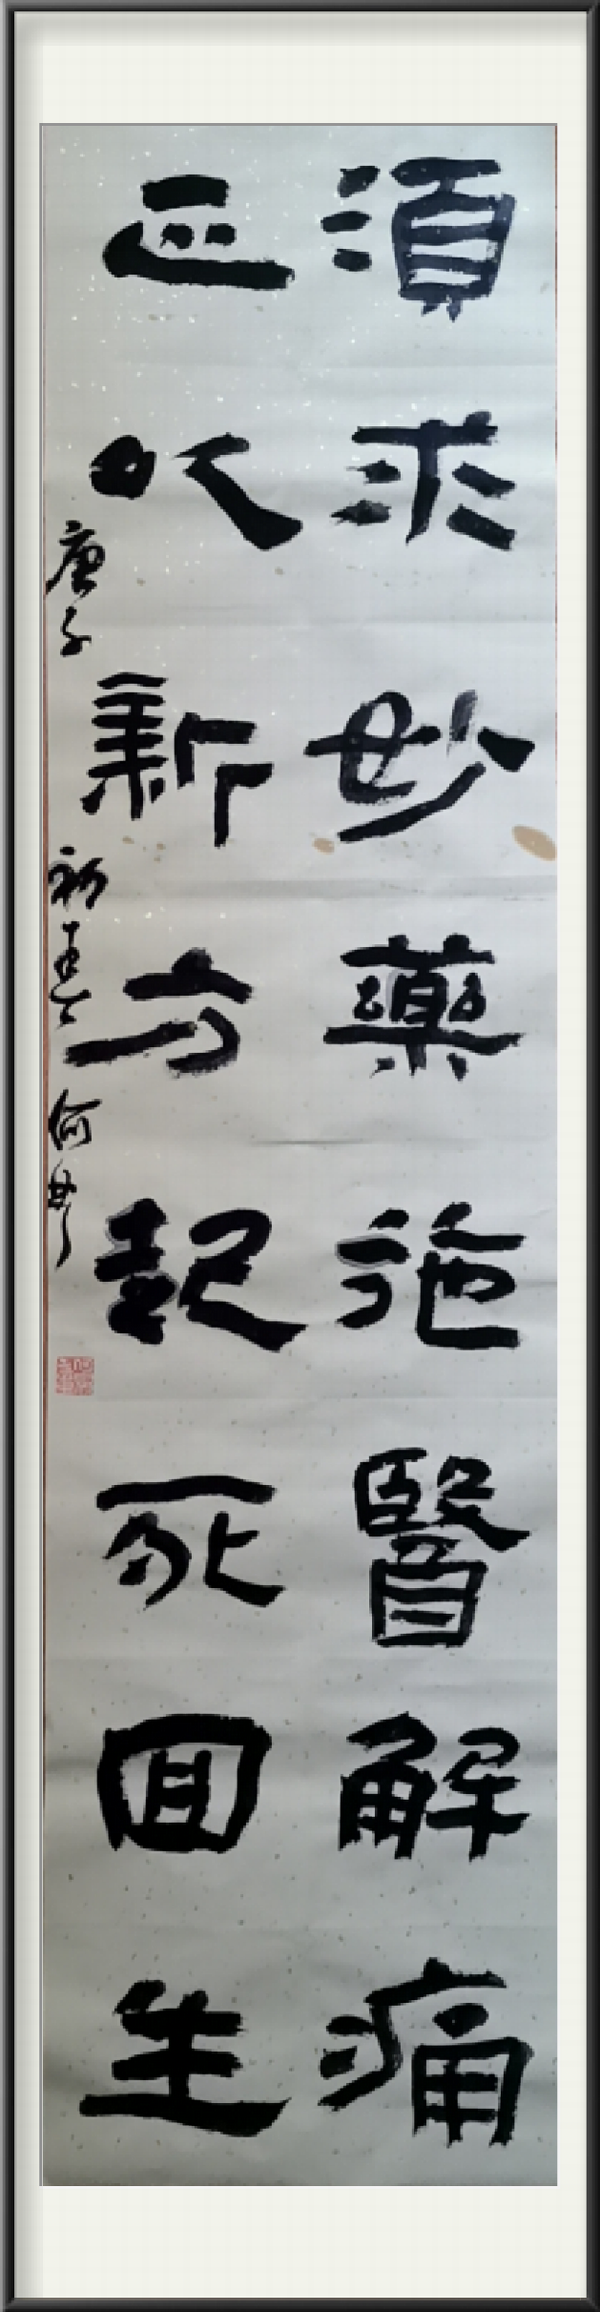 須求妙藥施醫解痛
正以新方起死回生
庚子 初春 何